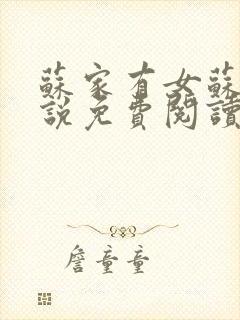 蘇家有女蘇
說免費閱讀
詹童童